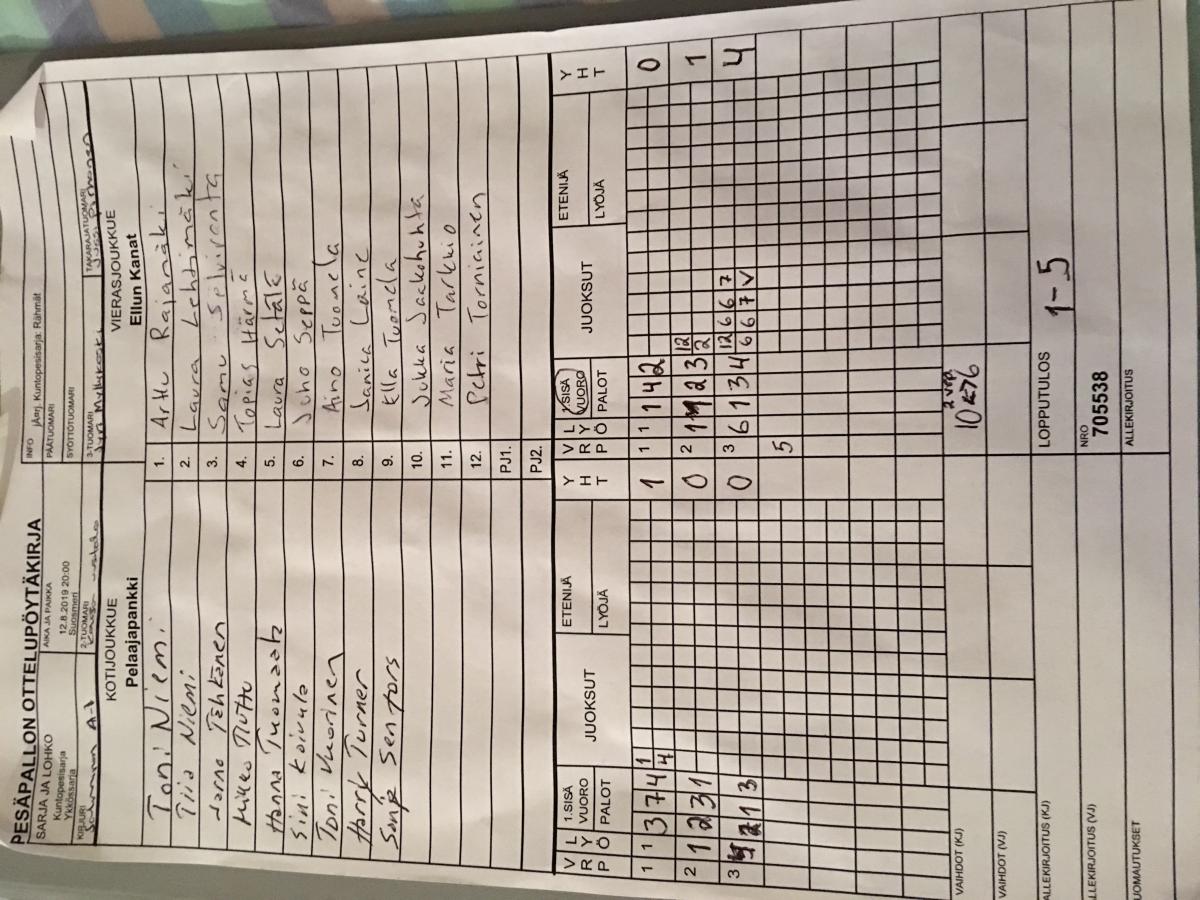 PESÄPALLON OTTELUPÖYTÄKIRJA
SARJA JA LOHKO
Kuntopesisarja
Ykkössarja
AIKA JA PAIKKA
12.8.2019 20:00
Suosmeri
INFO jÄrj. Kuntopesisarja: Rähmät
PÄÄTUOMARI
SYÖTTÖTUOMARI
KIRJURI
A-J
2-TUOMARI
3-TUOMARI
TAKARAJATUOMARI
KOTIJOUKKUE
Pelaajapankki
VIERASJOUKKUE
Ellun Kanat
Toni Niemi
1. Arttu Rajamäki
Tiia Niemi
2. Laura Lehtimäki
Jarno Tähkänen
3. Samu Selviranta
Mikko
4. Topias Härmä
Hanna
5. Laura Setälä
Sini Koivula
6. Juho Seppä
Toni Vuorinen
7. Aino Tuomela
Harry Turner
8. Janica Laine
9. Ella Tuomela
10. Jukka Jaakohuhta
11. Maria Tarkkio
12. Petri Torniainen
PJ1.
PJ2.
VRP LYÖ 1.SISÄ VUORO PALOT JUOKSUT ETENIJÄ LYÖJÄ YHT
VRP LYÖ 1.SISÄ VUORO PALOT JUOKSUT ETENIJÄ LYÖJÄ YHT
1 1 3 7 4 1 4 1
1 1 1 4 2 0
2 1 2 3 1 0
2 1 1 2 3 12 2 1
3 4 2 1 3 0
3 6 1 3 4 12 6 6 7 4
6 6 7 V
5
VAIHDOT (KJ)
2.vrp
10<->6
VAIHDOT (VJ)
ALLEKIRJOITUS (KJ)
LOPPUTULOS 1-5
LLEKIRJOITUS (VJ)
NRO
705538
UOMAUTUKSET
ALLEKIRJOITUS